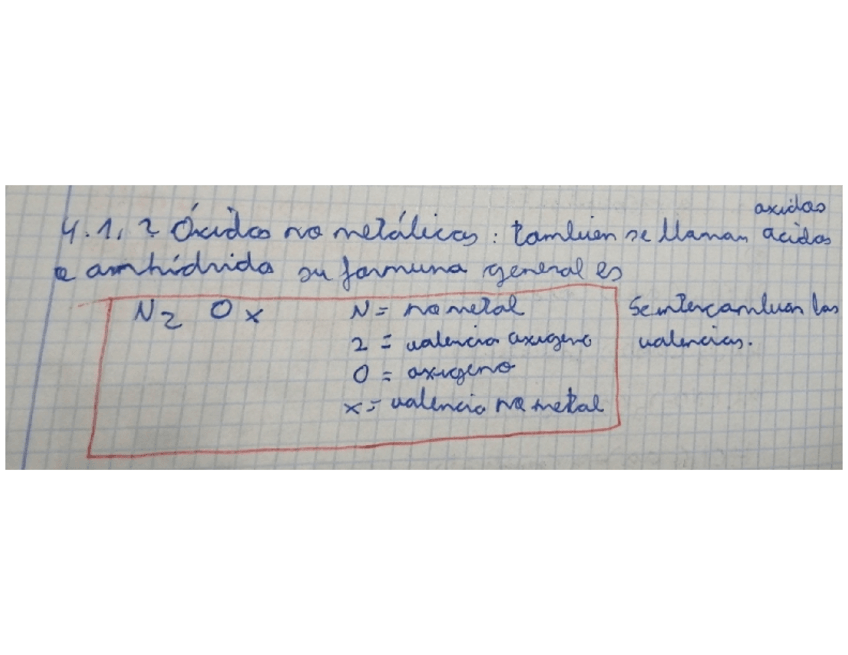 4.1.2 Óxidos no metálicos: tambien se llaman oxidos acidos
o anhídrido su formuna general es
N2 Ox N = no metal Se intercambian las
2 = valencia oxigeno valencias.
O = oxigeno
x = valencia no metal